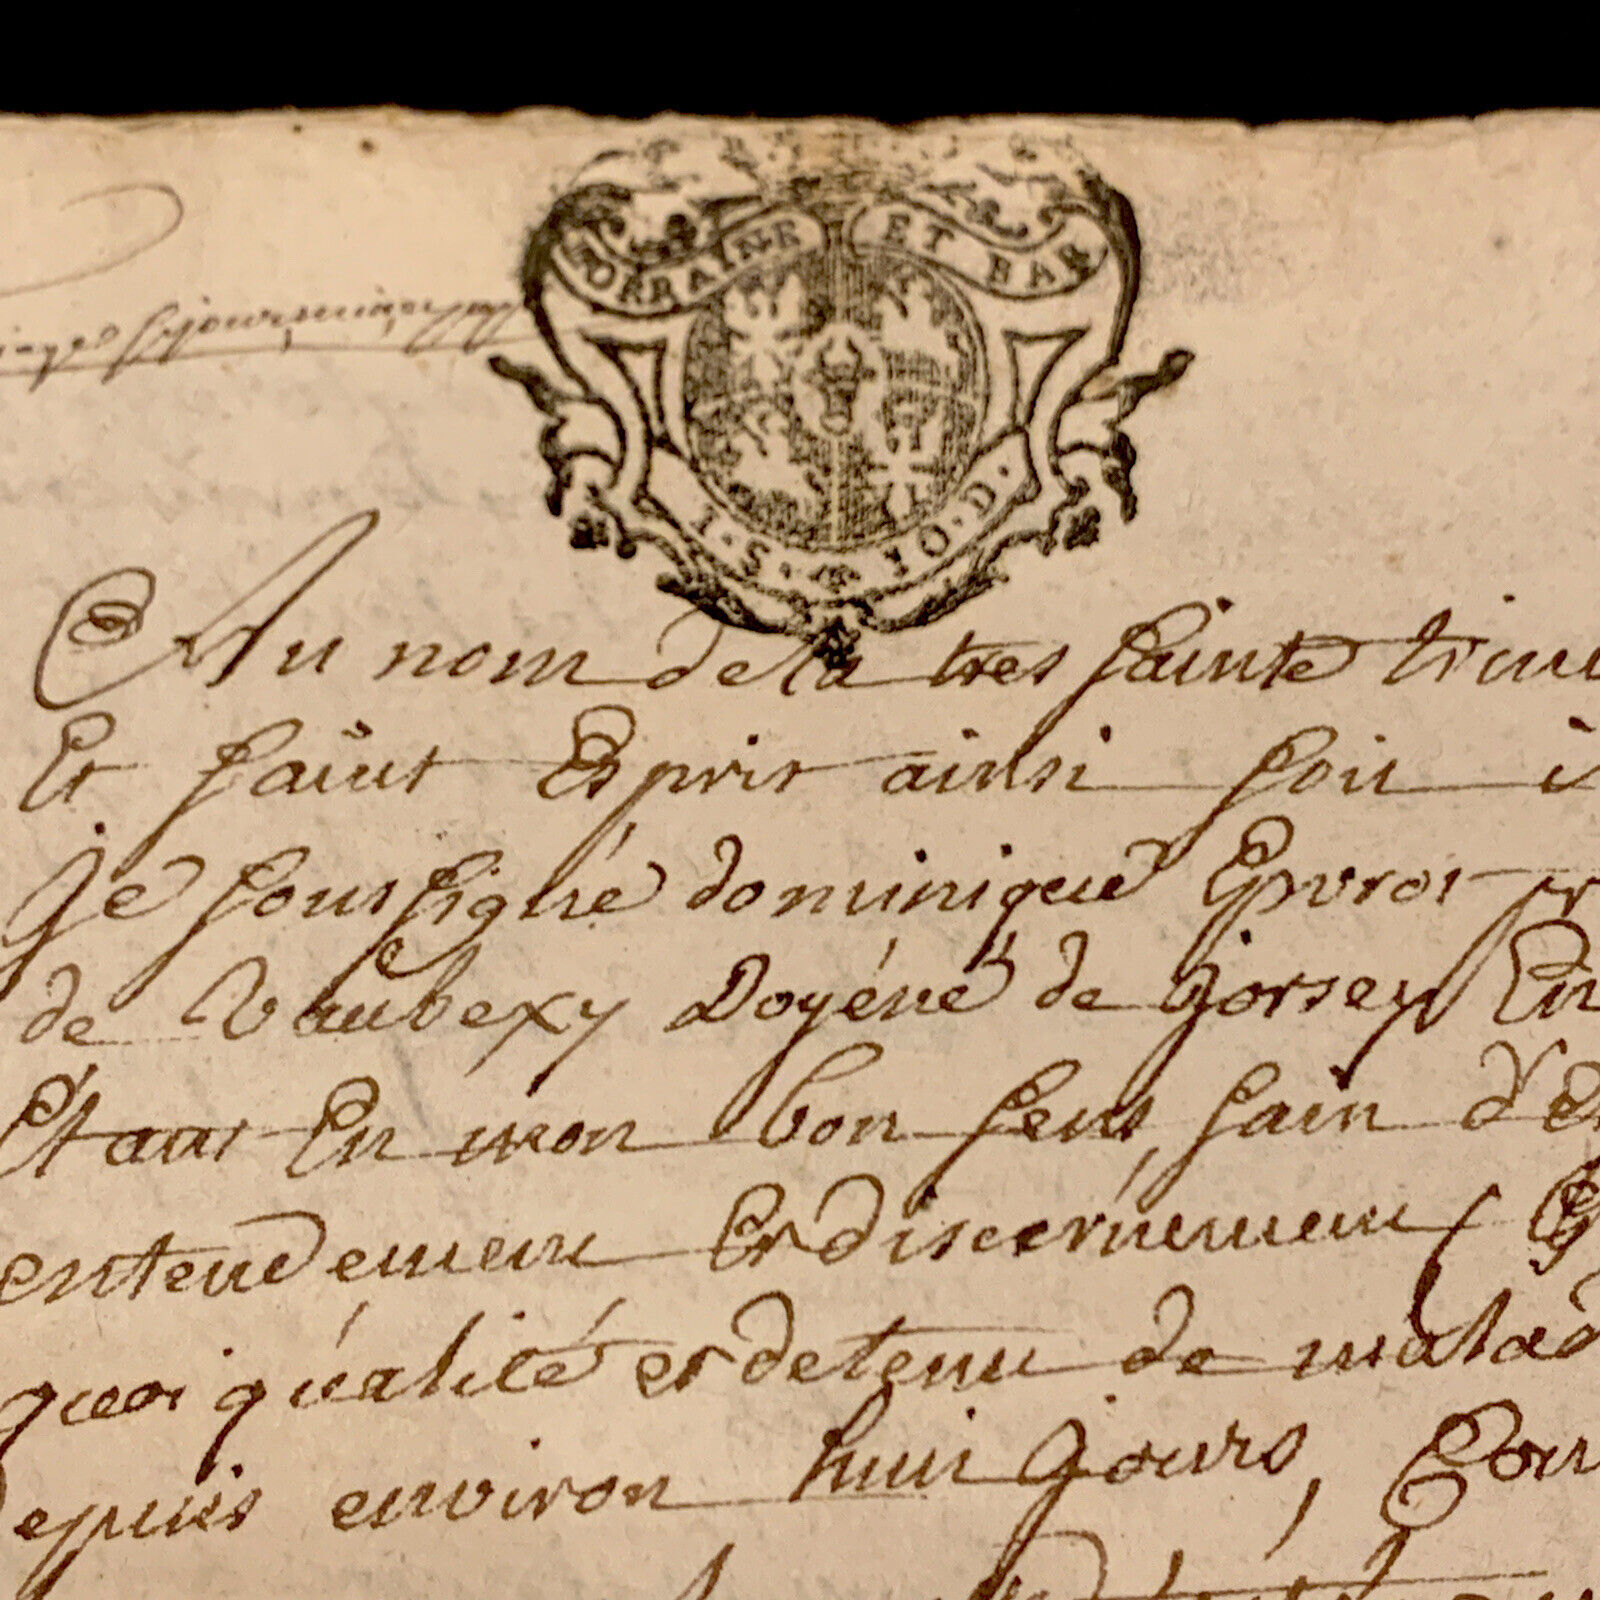 LORRAINE ET BAR
I · S · 10 · D ·
Au nom de la tres sainte
Et saint Esprit ainsi soit
Je soussigné dominique Epvrot
de Vaubexy Doyéné de Jorxey En
Etant En mon bon sens, sain d'
entendement Et discernement,
quoi qu'alité et detenu de
epuis environ huit Jours,